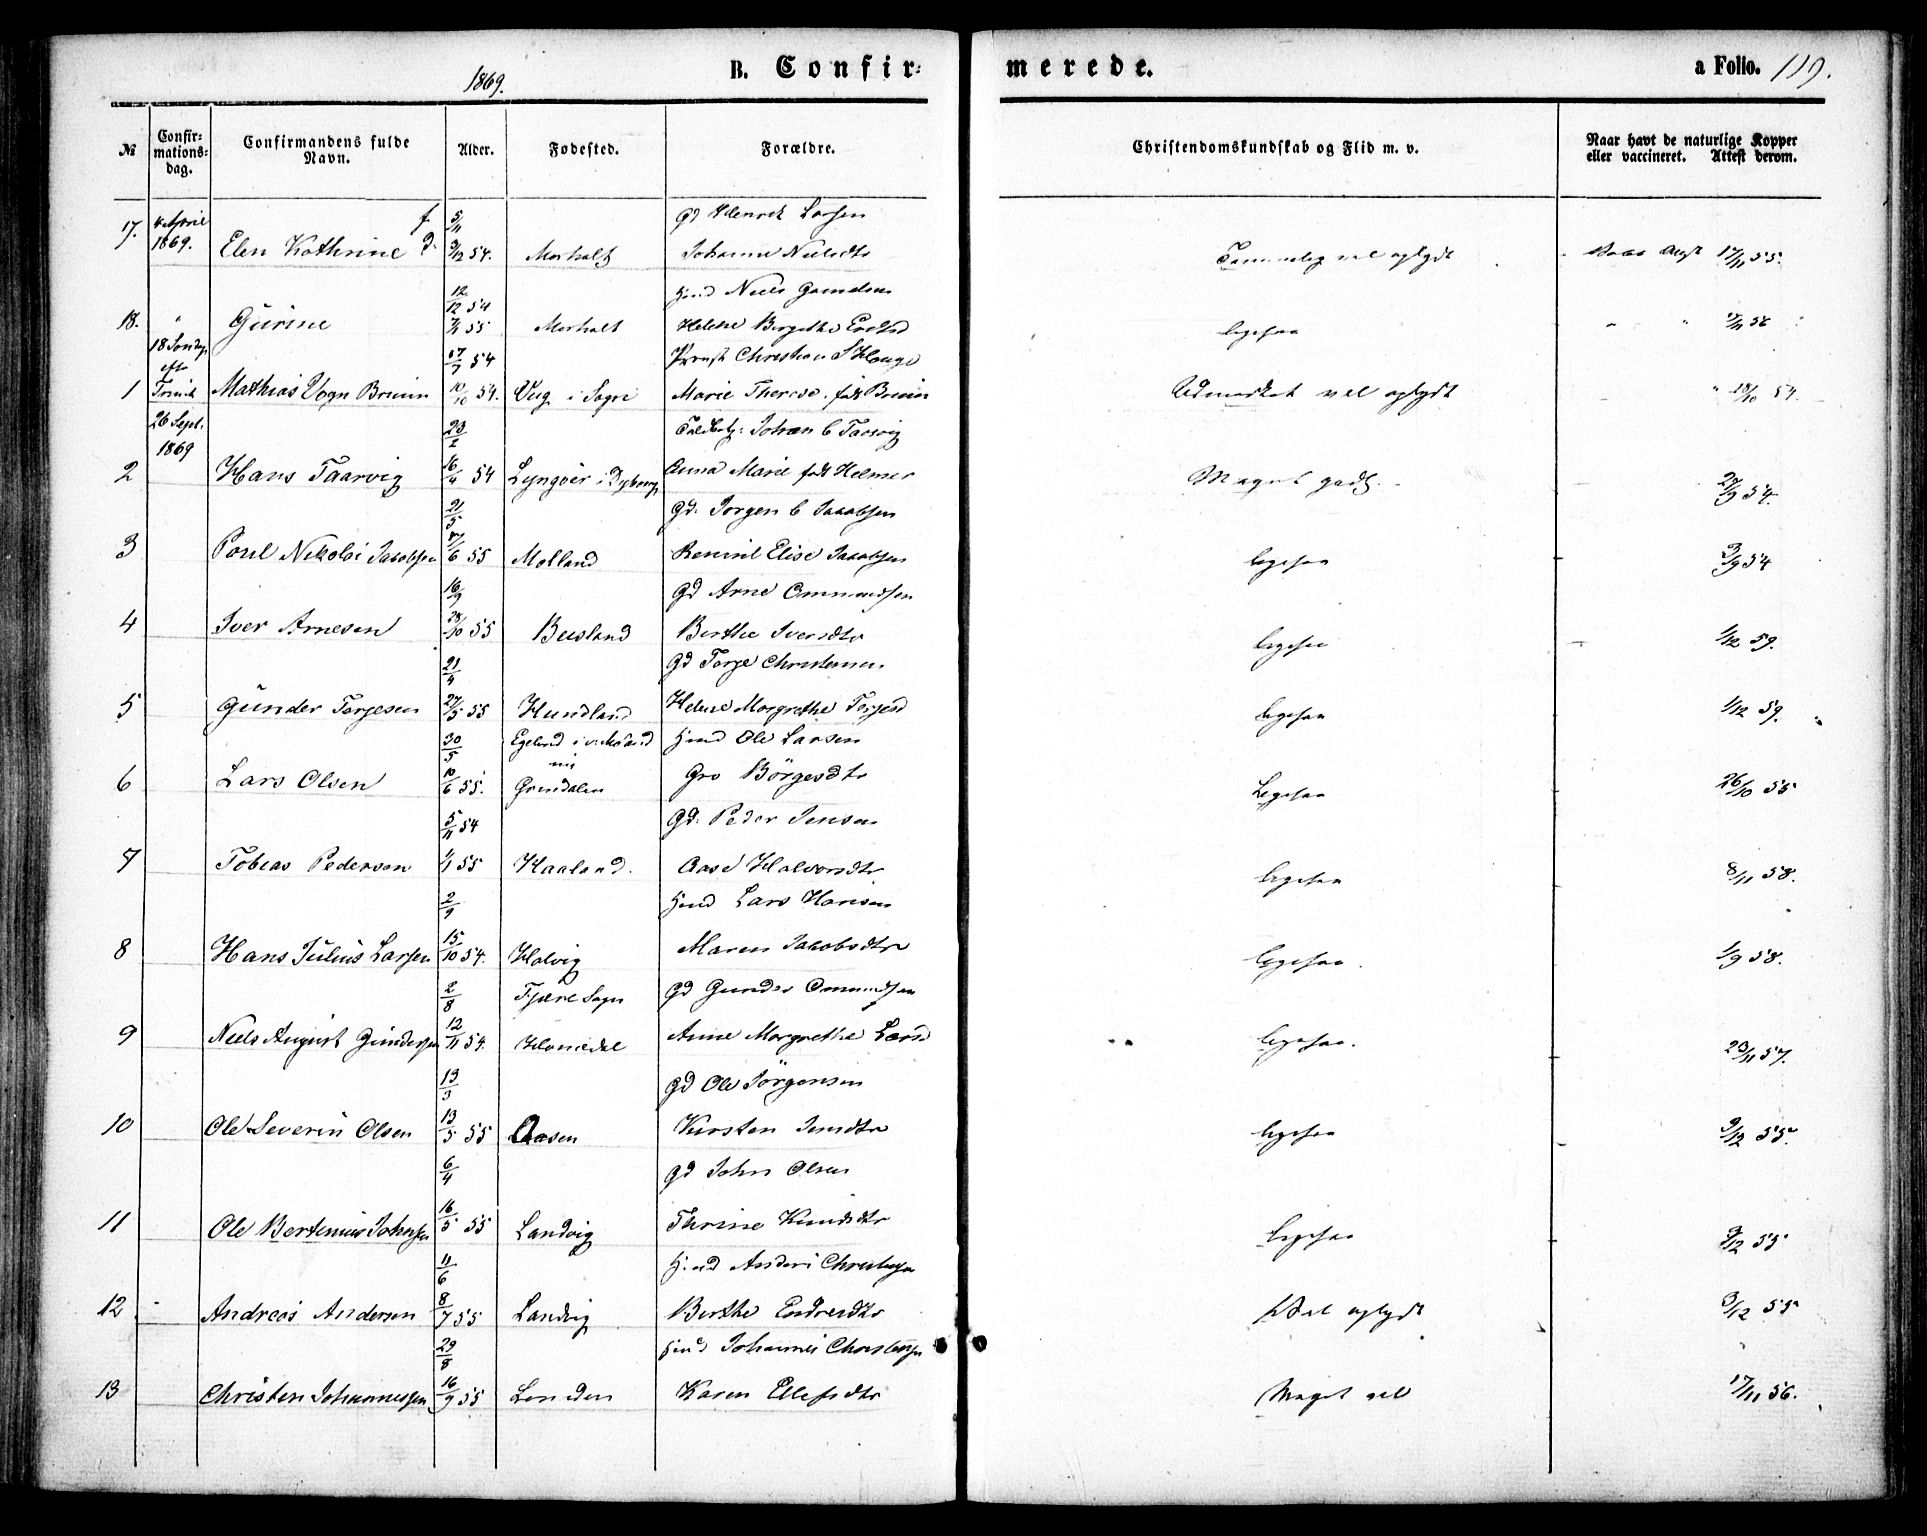 1869.
B. Confir-
merede.
a Folio. 119.
№
Confir-
mations-
dag.
Confirmandens fulde
Navn.
Alder.
Fødested.
Forældre.
Christendomskundskab og Flid m. v.
Naar havt de naturlige Kopper
eller vaccineret. Attest derom.
17. 4 April f. 5/11 Gd Henrik Larsen
1869. Elen Kathrine d. 3/12 54. Morholt Johanne Nielsdtr vel oplyst 17/11 55.
12/12 54 Hmd Niels
18. " Gurine 7/1 55 Morholt Helene ligesaa " 56
18 Søndag 17/7 54 Christian S Hauge
efter
1 Trinit Mathias Vogn Bruun 10/10 54. Vug i Sogn Marie Therese født Bruun Udmærket vel oplyst " 18/10 54.
26 Sept. 23/2 Johan C Taarvig
1869
2 Hans Taarvig 16/4 54 Lyngøer i Dybvaag Anna Marie født Helmer Meget godt. 29/9 54.
21/5 Gd. Jørgen C Jacobsen
3 Poul Nikolai Jacobsen 7/6 55 Molland Elise Jacobsen ligesaa 3/9 54
16/9 Gd Arne Ommundsen
4 Iver Arnesen 28/10 55 Beisland Berthe Iversdtr ligesaa 1/12 59.
21/4 Gd Torje Christensen
5 Gunder Torjesen 27/5 55 Hundland Helene Margrethe Torjesd ligesaa 1/12 59.
30/5 Egeland i Hmd Ole Larsen
nu
6 Lars Olsen 10/6 55. Grendalen Gro Börgesdtr Ligesaa 26/10 55
5/11 54 Gd. Peder Jensen
7 Tobias Pedersen 1/1 55 Haaland. Aase Halvorsdtr ligesaa 8/11 58.
2/9 Hmd Lars Hansen
8 Hans Julius Larsen 15/10 54. Halvig Maren Jakobsdtr ligesaa. 1/9 58.
2/8 Fjære Sogn Gd Gunder Ommundsen
9 Niels August Gundersen 12/11 54. Homedal Anne Margrethe Larsd ligesaa. 23/11 57.
13/3 Gd Ole Jörgensen
10 Ole Severin Olsen 13/5 55 Aasen Kirsten Jensdtr ligesaa 3/12 55
6/4 Gd John Olsen
11 Ole Bertinius Johnsen 16/5 55 Landvig Thrine Knudsdtr ligesaa 3/12 55
11/6 Hmd Anders Christensen
12 Andreas Andersen 8/7 55 Landvig Berthe Endresdtr Vel oplyst 3/12 55
29/8 Hmd Johannes
13 Christen Johannessen 16/9 55 Lenden Karen Ellefsdtr Meget vel 17/11 56.